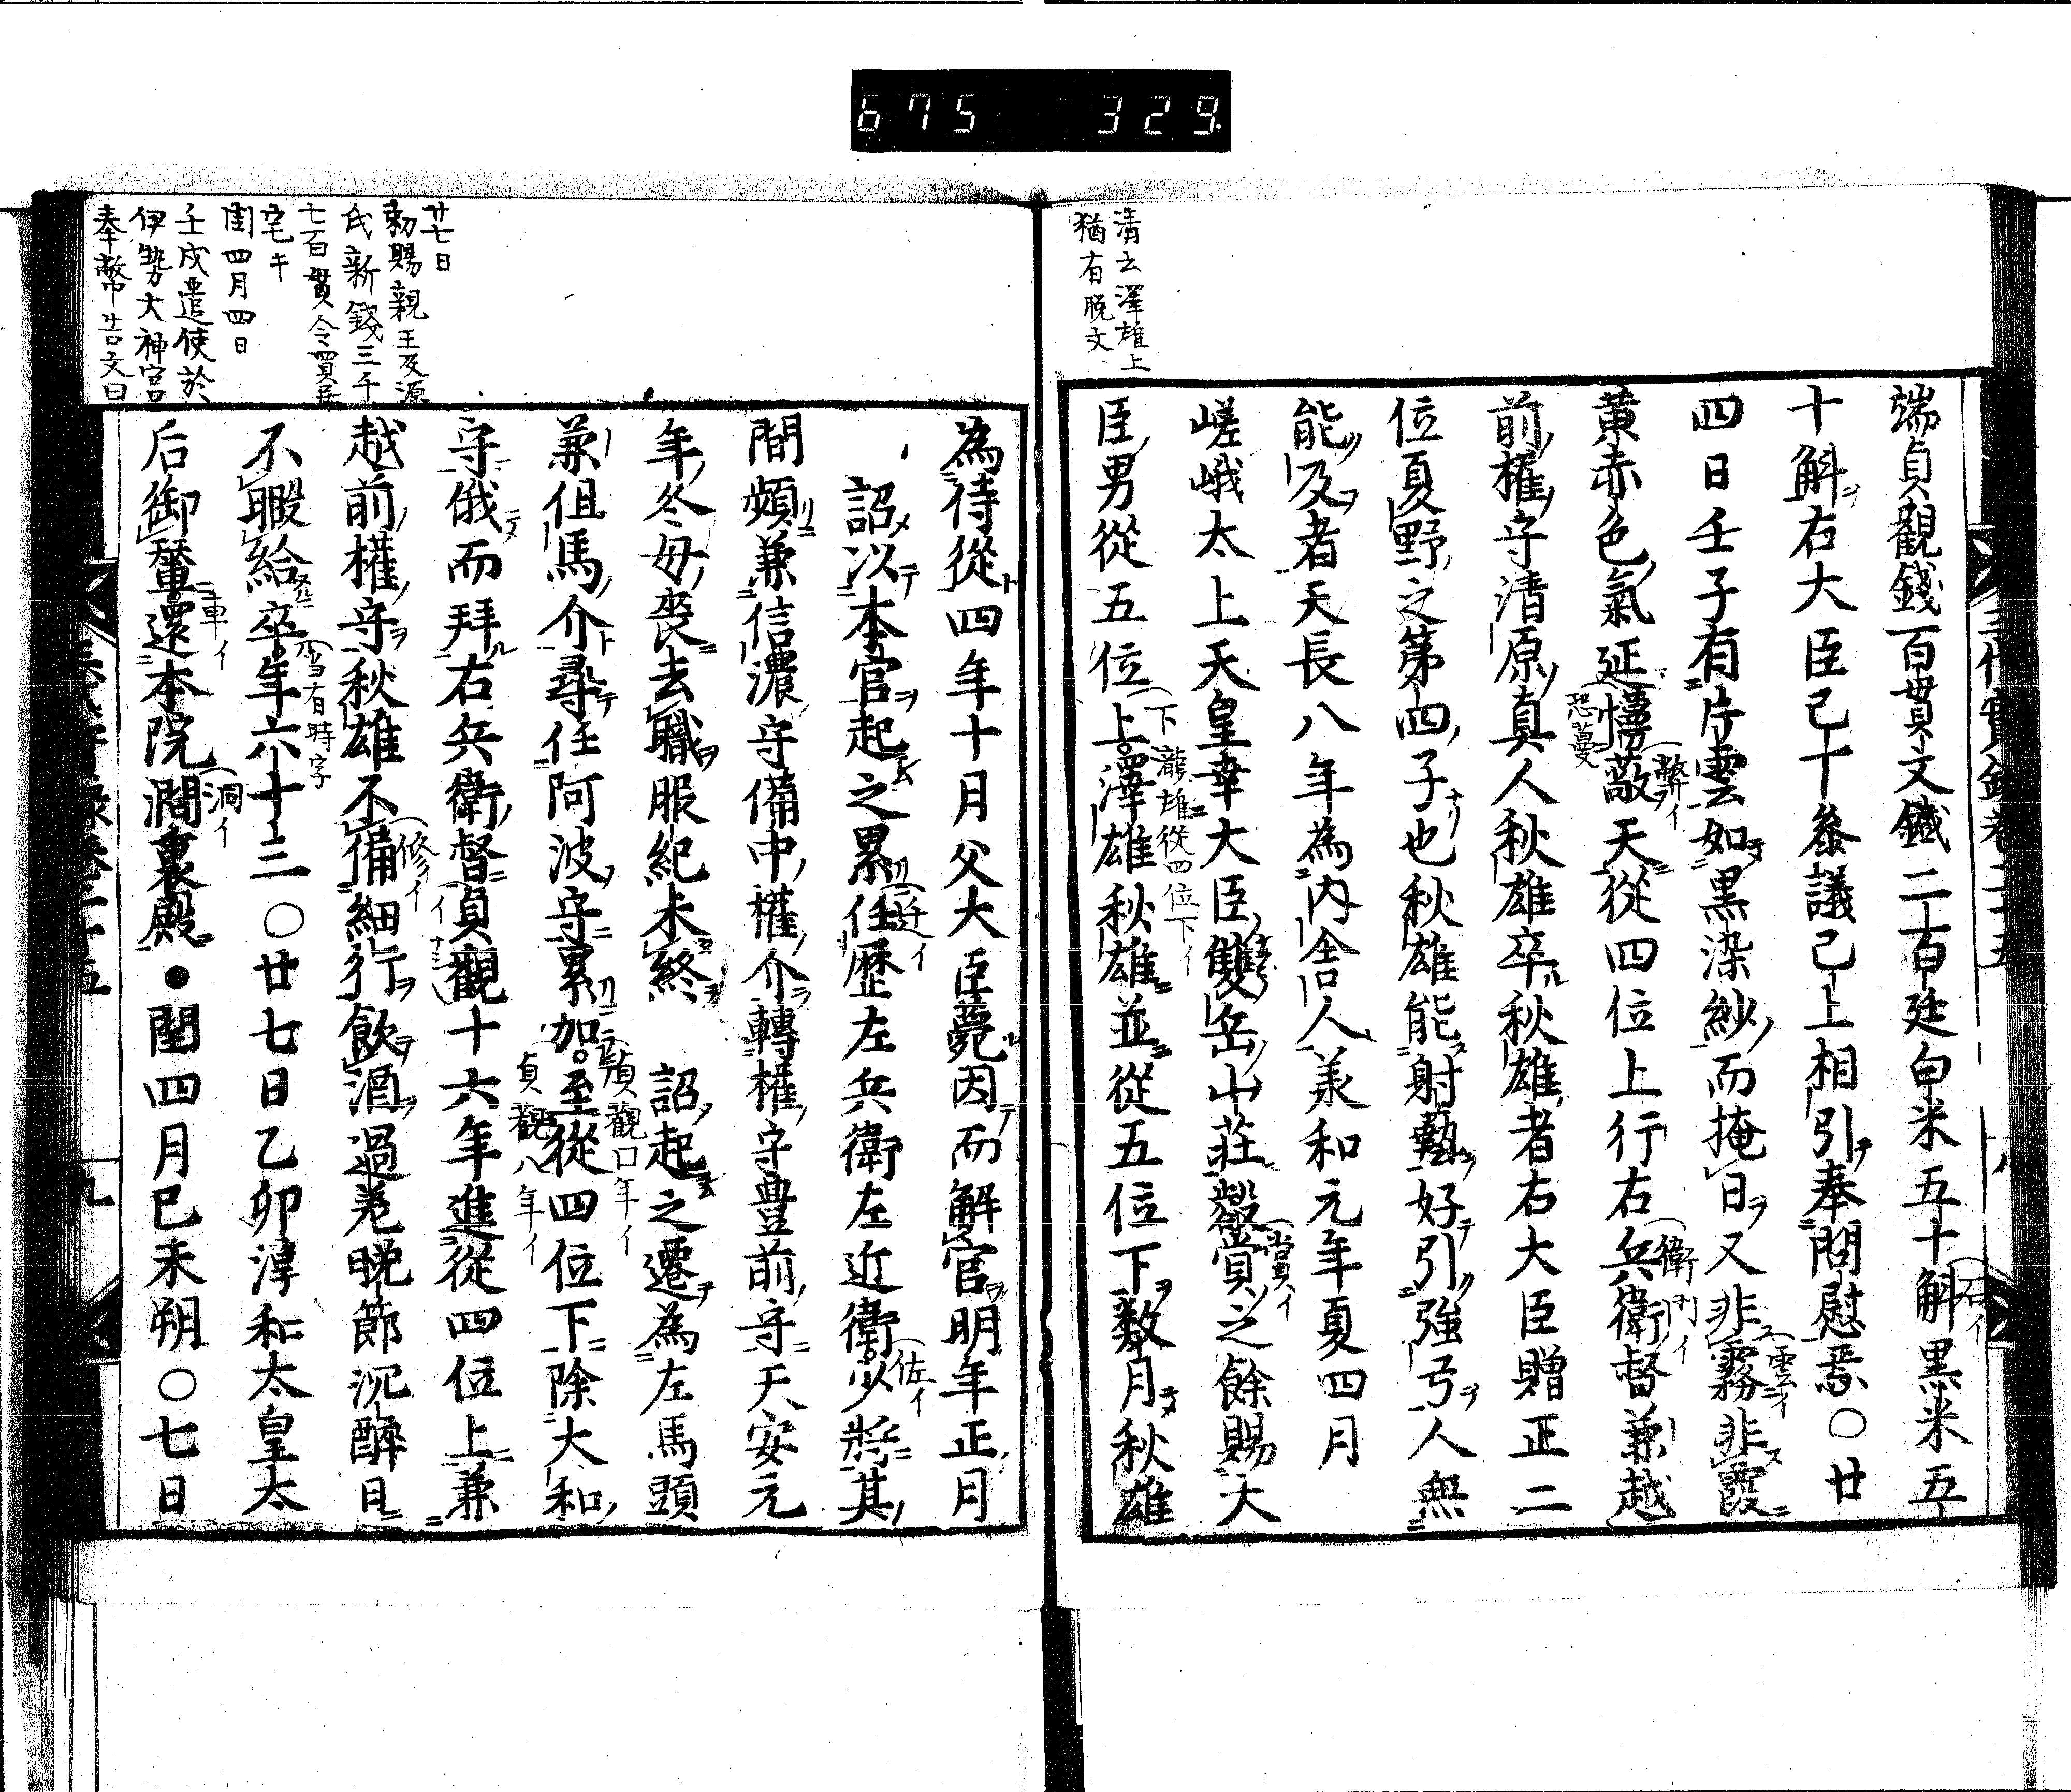 675 329
清云澤雄上
猶有脱文
端貞觀錢百貫文鐵二百廷白米五十斛黒米五
十斛右大臣已下參議已上相引奉問慰焉〇廿
四日壬子有片雲如黒染紗而掩日又非霧非霞
黄赤色氣延懮蔽天從四位上行右兵衛督兼越
前權守清原真人秋雄卒秋雄者右大臣贈正二
位夏野之第四子也秋雄能射藝好引強弓人無
能及者天長八年為内舍人承和元年夏四月
嵯峨太上天皇幸大臣雙岳山莊翫賞之餘賜大
臣男從五位上澤雄秋雄並從五位下數月秋雄
石イ
雲イ
弊イ
恐蔓
衛門イ
賞イ
下瀧雄從四位下イ
三代實録卷二十五
八
廿七日
勅賜親王及源
氏新錢三千
七百貫令買居
宅キ
閏四月四日
壬戌遣使於
伊勢大神宮
奉幣告文曰
為侍從四年十月父大臣薨因而解官明年正月
詔以本官起之累任歴左兵衛左近衛少將其
間頻兼信濃守備中權介轉權守豊前守天安元
年冬毋喪去職服紀未終 詔起之遷為左馬頭
兼伹馬介尋任阿波守累加至從四位下除大和
守俄而拜右兵衛督貞觀十六年進從四位上兼
越前權守秋雄不備細行飲酒過差晩節沉醉日
不暇給卒年六十三〇廿七日乙卯淳和太皇太
后御輦還本院澗裏殿●閏四月巳未朔〇七日
迁イ
佐イ
貞觀口年イ
貞觀八年イ
修イ
当有時字
車イ
洞イ
三代實録卷二十五
九